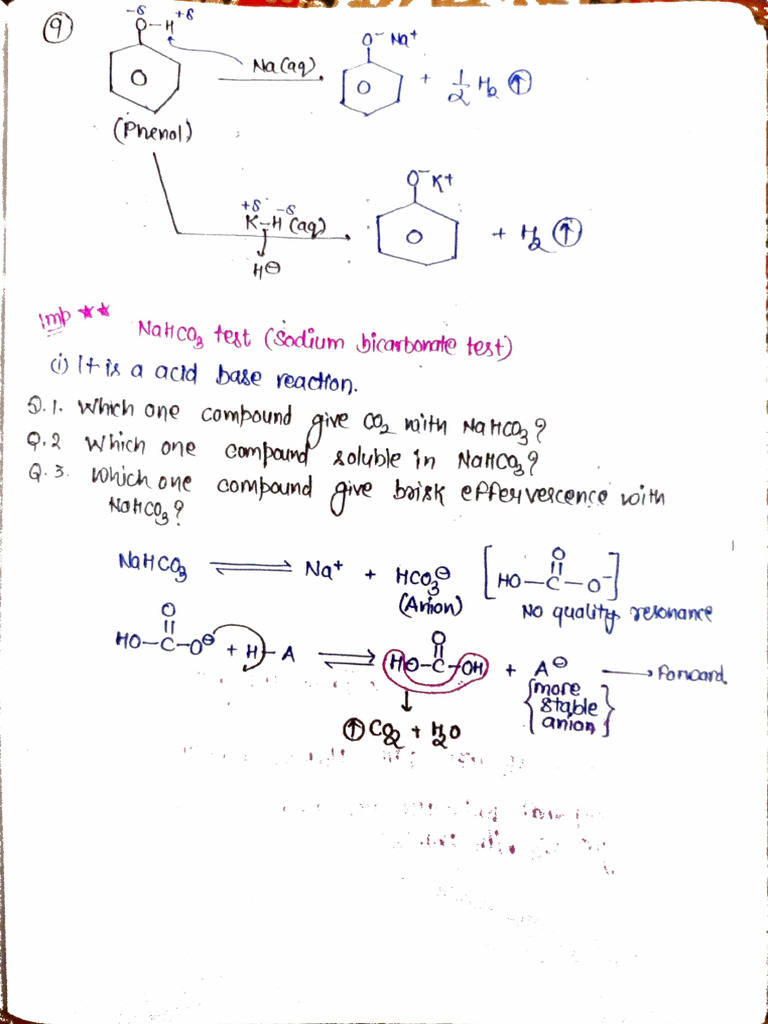 9
-δ +δ
O-H
Na(aq)
O⁻ Na⁺
+ 1/2 H₂ ↑
(Phenol)
+δ -δ
K-H (aq)
H⊖
O⁻ K⁺
+ H₂ ↑
Imp ★★
NaHCO₃ test (Sodium bicarbonate test)
(i) It is a acid base reaction.
Q.1. Which one compound give CO₂ with NaHCO₃?
Q.2 Which one compound soluble in NaHCO₃?
Q.3. Which one compound give brisk effervescence with
NaHCO₃?
NaHCO₃ ⇌ Na⁺ + HCO₃⊖ [HO-C(=O)-O⁻]
(Anion) No quality resonance
HO-C(=O)-O⊖ + H-A ⇌ HO-C(=O)-OH + A⊖ → Forward
{more
stable
anion}
↑CO₂ + H₂O